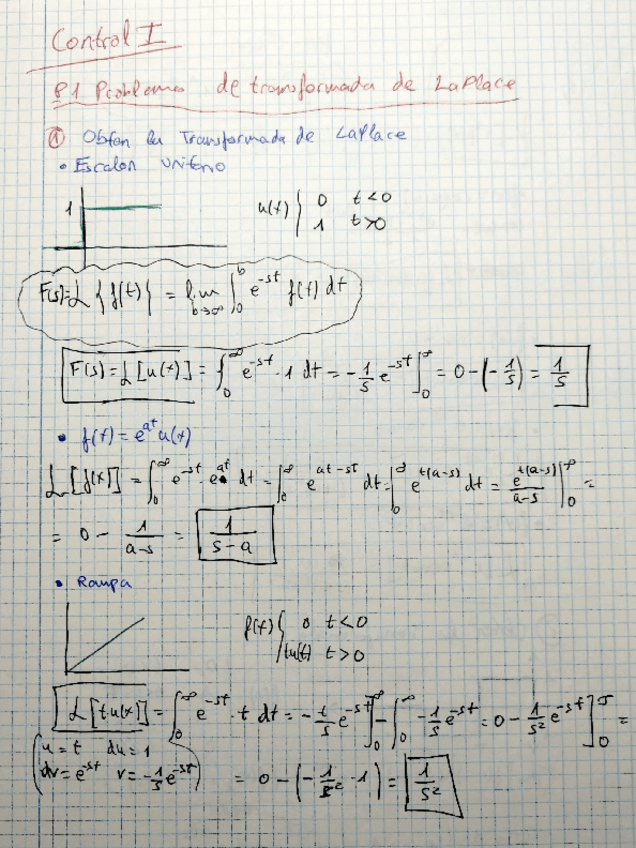 Control I
P1 Problemas de transformada de LaPlace
① Obten la Transformada de LaPlace
• Escalon Unitario
1
u(t) { 0 t<0
1 t>0
F(s)=L{f(t)} = lim b→∞ ∫₀ᵇ e^-st f(t) dt
F(s)=L[u(t)] = ∫₀^∞ e^-st · 1 dt = -1/s e^-st ]₀^∞ = 0-(-1/s) = 1/s
• f(t) = e^at u(t)
L[f(t)] = ∫₀^∞ e^-st · e^at dt = ∫₀^∞ e^at-st dt = ∫₀^∞ e^t(a-s) dt = e^t(a-s)/a-s |₀^∞ =
= 0 - 1/a-s = 1/s-a
• Rampa
f(t) { 0 t<0
tu(t) t>0
L[tu(t)] = ∫₀^∞ e^-st · t dt = -t/s e^-st ]₀^∞ - ∫₀^∞ -1/s e^-st = 0 - 1/s² e^-st ]₀^∞ =
(u = t du = 1
dv = e^-st v = -1/s e^-st) = 0 - (-1/s² · 1) = 1/s²